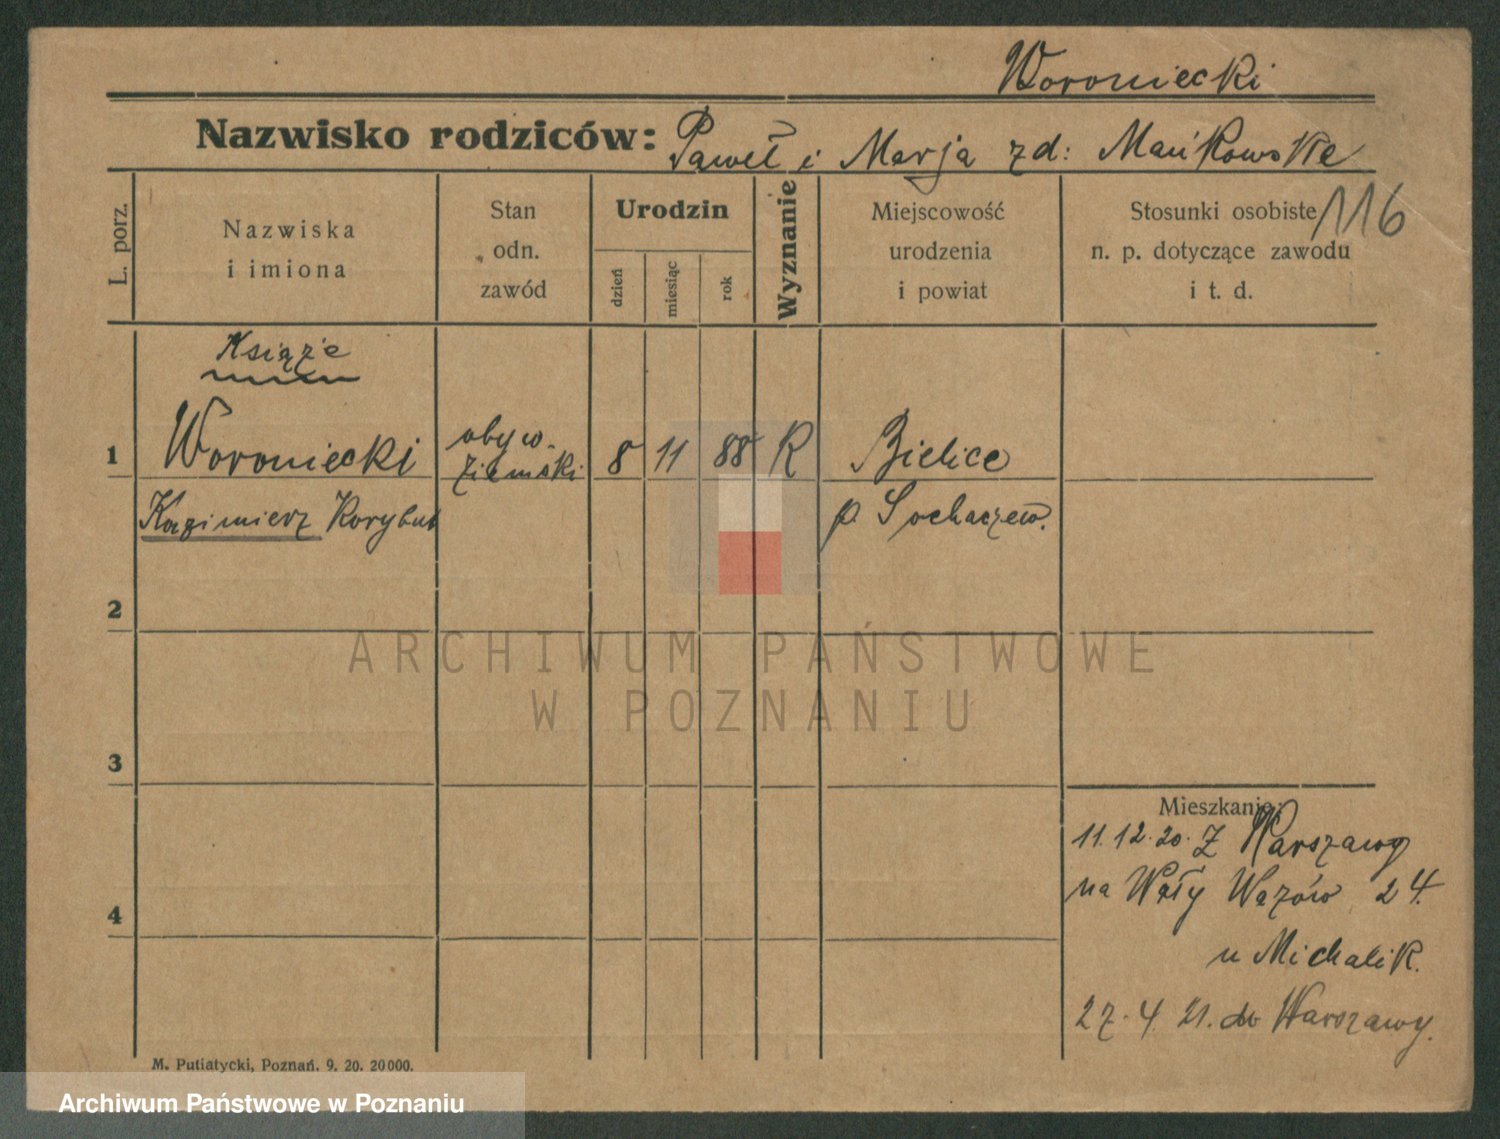 Woroniecki
Nazwisko rodziców: Paweł i Marja zd: Mańkowskie
116
L. porz.
Nazwiska
i imiona
Stan
odn.
zawód
Urodzin
dzień
miesiąc
rok
Wyznanie
Miejscowość
urodzenia
i powiat
Stosunki osobiste
n. p. dotyczące zawodu
i t. d.
Książe
1 Woroniecki obyw. ziemski 8 11 88 R Bielice
Kazimierz Korybut p. Sochaczew.
2
ARCHIWUM PAŃSTWOWE
W POZNANIU
3
Mieszkanie:
11.12.20. Z Warszawy
na Wały Wazów 24.
u Michalik.
4
27.4.21. do Warszawy.
M. Putiatycki, Poznań. 9. 20. 20000.
Archiwum Państwowe w Poznaniu